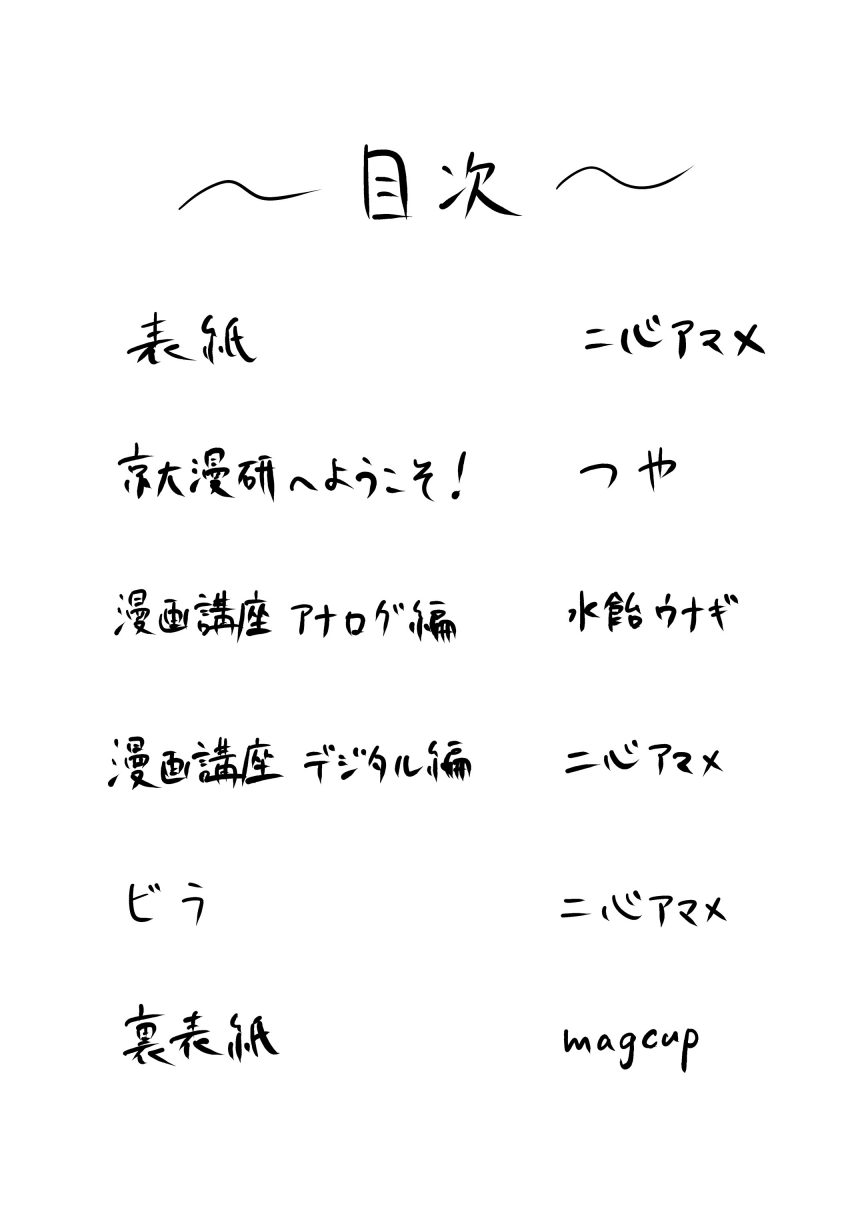 ～目次～
表紙 二心アマメ
京大漫研へようこそ! つや
漫画講座 アナログ編 水飴ウナギ
漫画講座 デジタル編 二心アマメ
ビラ 二心アマメ
裏表紙 magcup